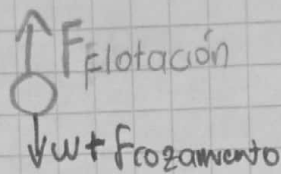 F Flotación
w + fcozamiento